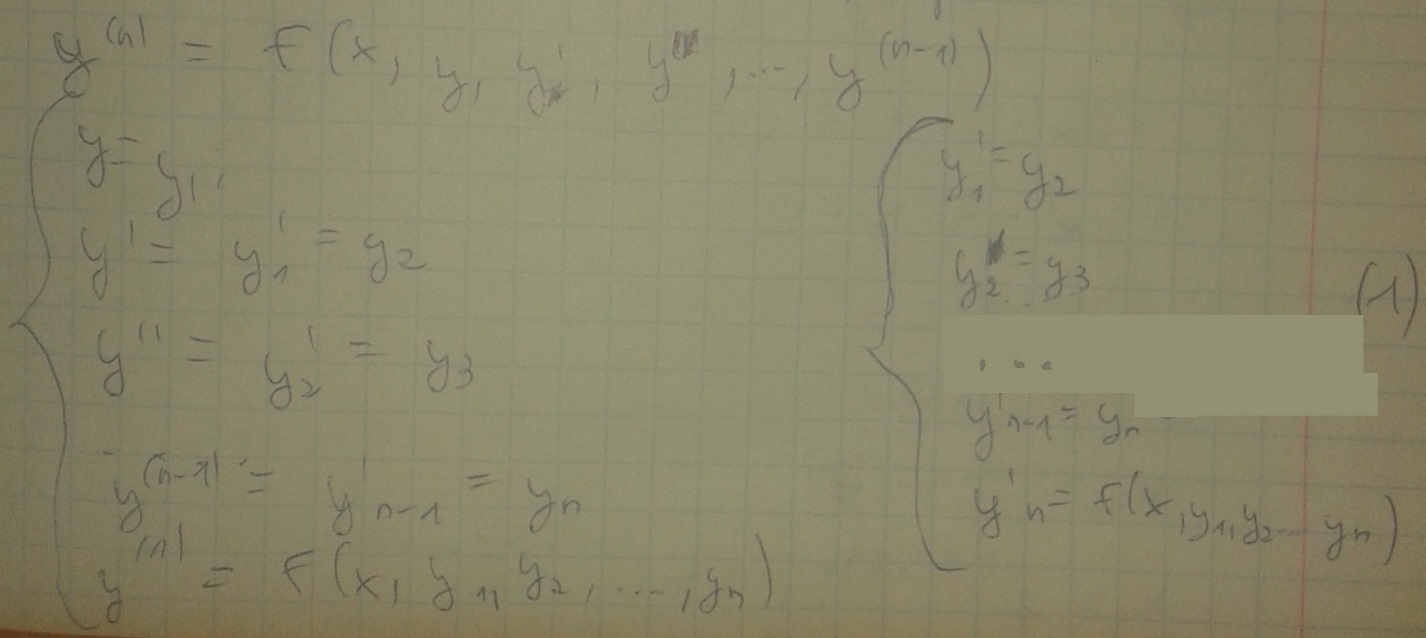 y^(n) = f(x, y, y', y'', ..., y^(n-1))
y = y₁,
y' = y₁' = y₂
y'' = y₂' = y₃
y^(n-1) = y'ₙ₋₁ = yₙ
y^(n) = f(x, y₁, y₂, ..., yₙ)
y₁' = y₂
y₂' = y₃
(1)
...
y'ₙ₋₁ = yₙ
y'ₙ = f(x, y₁, y₂ ... yₙ)